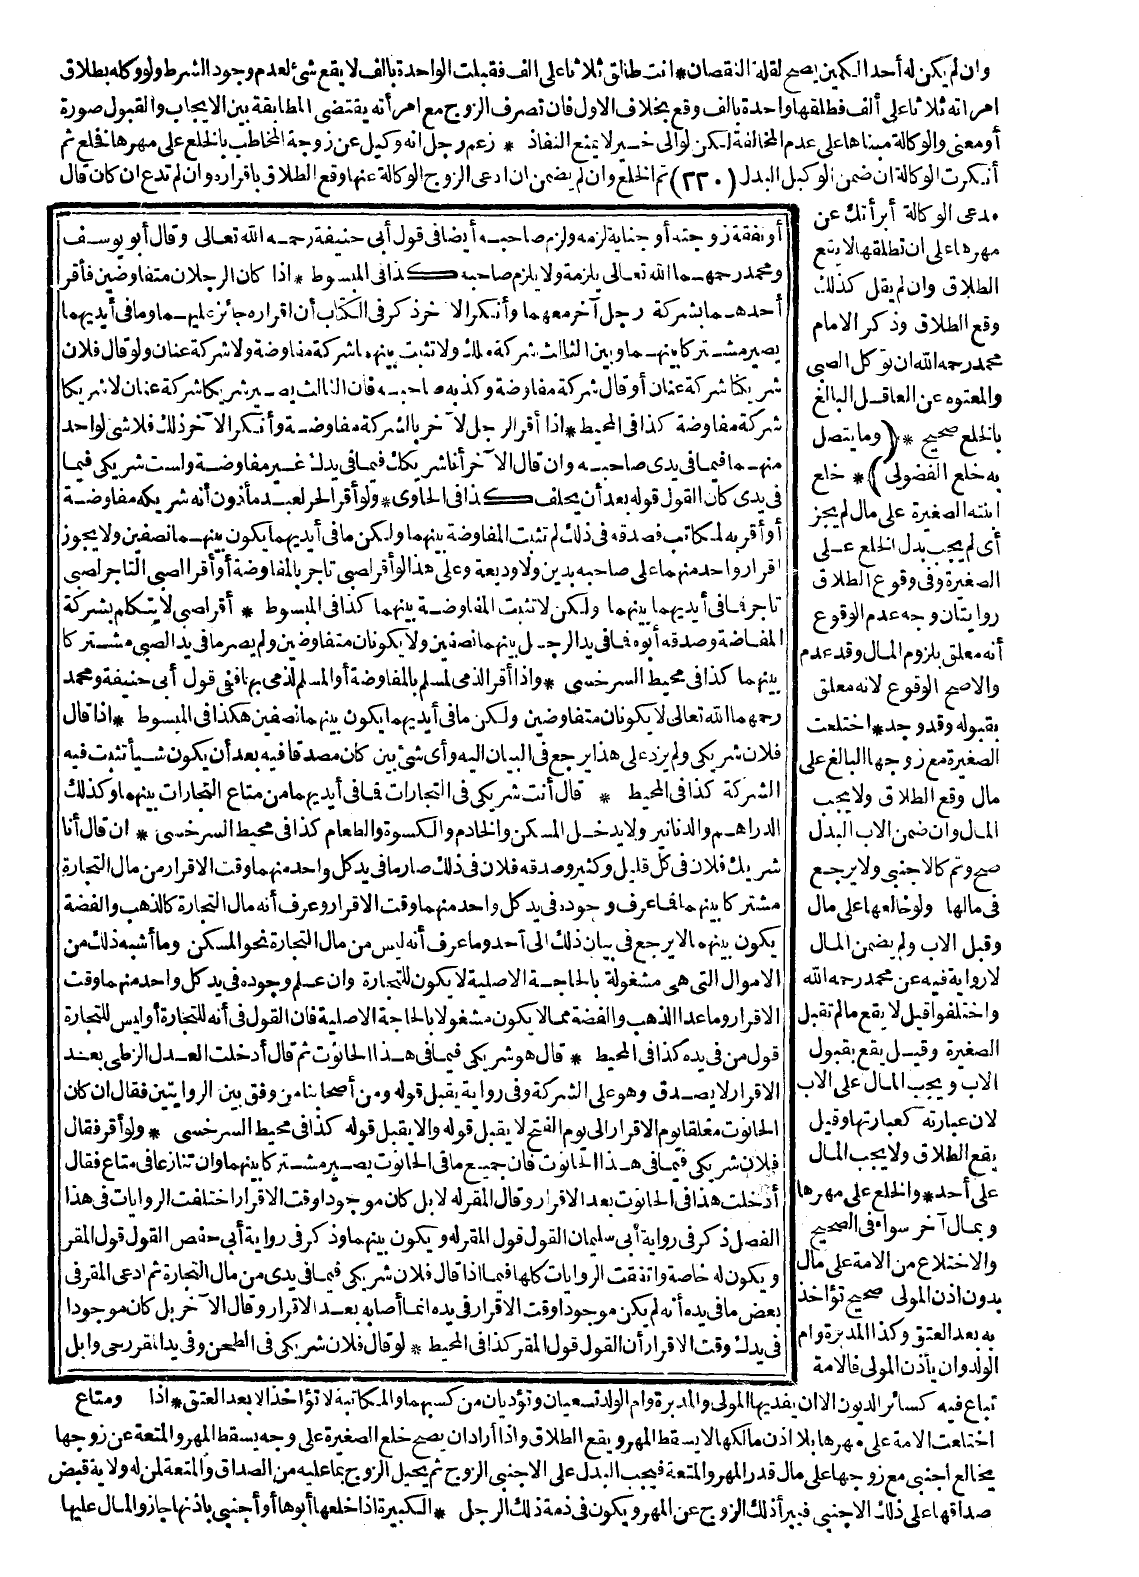 وان لم يكن له أحد الحكمين يصح لقلة النقصان * انت طالق ثلاثا على الف فقبلت الواحدة بالف لا يقع شئ لعدم وجود الشرط ولو وكله بطلاق
امرأته ثلاثا على ألف فطلقها واحدة بالف وقع بخلاف الاول فان تصرف الزوج مع امرأته يقتضى المطابقة بين الايجاب والقبول صورة
أو معنى والوكالة مبناها على عدم المخالفة لكن لو الى خسير لا يمنع النفاذ * زعم رجل انه وكيل عن زوجة المخاطب بالخلع على مهرها فخلع ثم
أنكرت الوكالة ان ضمن الوكيل البدل (٢٢٠) تم الخلع وان لم يضمن ان ادعى الزوج الوكالة عنها وقع الطلاق باقراره وان لم تدع ان كان قال
مدعى الوكالة أبرأتك عن
مهرها على ان تطلقها لا يقع
الطلاق وان لم يقل كذلك
وقع الطلاق وذكر الامام
محمد رحمه الله ان توكل الصبى
والمعتوه عن العاقل البالغ
بالخلع صحيح * (وما يتصل
به خلع الفضولى) * خلع
ابنته الصغيرة على مال لم يجز
أى لم يجب بدل الخلع على
الصغيرة وفى وقوع الطلاق
روايتان وجه عدم الوقوع
أنه معلق بلزوم المال وقد عدم
والاصح الوقوع لانه معلق
بقبوله وقد وجد * اختلعت
الصغيرة مع زوجها البالغ على
مال وقع الطلاق ولا يجب
المال وان ضمن الاب البدل
صح وتم كالاجنبى ولا يرجع
فى مالها ولو خالعها على مال
وقبل الاب ولم يضمن المال
لا رواية فيه عن محمد رحمه الله
واختلفوا قيل لا يقع مالم تقبل
الصغيرة وقيل يقع بقبول
الاب ويجب المال على الاب
لان عبارته كعبارتها وقيل
يقع الطلاق ولا يجب المال
على أحد * والخلع على مهرها
وبمال آخر سواء فى الصحيح
والاختلاع من الامة على مال
بدون اذن المولى صحيح تؤاخذ
به بعد العتق وكذا المدبرة وام
الولد وان بأذن المولى فالامة
أو بنفقة زوجته أو جناية لزمه ولزم صاحبه أيضا فى قول أبى حنيفة رحمه الله تعالى وقال أبو يوسف
ومحمد رحمهما الله تعالى يلزمه ولا يلزم صاحبه كذا فى المبسوط * اذا كان الرجلان متفاوضين فأقر
أحدهما بشركة رجل آخر معهما وأنكر الآخر ذكر فى الكتاب أن اقراره جائز عليهما وما فى أيديهما
يصير مشتركا بينهما وبين الثالث شركة ملك ولا تثبت بينهم شركة مفاوضة ولا شركة عنان ولو قال فلان
شريكنا شركة عنان أو قال شركة مفاوضة وكذبه صاحبه فان الثالث يصير شريكا شركة عنان لا شريكا
شركة مفاوضة كذا فى المحيط * اذا أقر الرجل لآخر بالشركة مفاوضة وأنكر الآخر ذلك فلا شئ لواحد
منهما فيما فى يدى صاحبه وان قال الآخر أنا شريكك فيما فى يدك غير مفاوضة ولست شريكى فيما
فى يدى كان القول قوله بعد أن يحلف كذا فى الحاوى * ولو أقر الحر لعبد مأذون أنه شريكه مفاوضة
أو أقر به لمكاتب فصدقه فى ذلك لم تثبت المفاوضة بينهما ولكن ما فى أيديهما يكون بينهما نصفين ولا يجوز
اقرار واحد منهما على صاحبه بدين ولا وديعة وعلى هذا لو أقر لصبى تاجر بالمفاوضة أو أقر الصبى التاجر لصبى
تاجر فما فى أيديهما بينهما ولكن لا تثبت المفاوضة بينهما كذا فى المبسوط * أقر لصبى لا يتكلم بشركة
المفاضة وصدقه أبوه فما فى يد الرجل بينهما نصفين ولا يكونان متفاوضين ولم يصر ما فى يد الصبى مشتركا
بينهما كذا فى محيط السرخسى * واذا أقر الذمى لمسلم بالمفاوضة أو المسلم لذمى بها ففى قول أبى حنيفة ومحمد
رحمهما الله تعالى لا يكونان متفاوضين ولكن ما فى أيديهما يكون بينهما نصفين هكذا فى المبسوط * اذا قال
فلان شريكى ولم يزد على هذا يرجع فى البيان اليه وأى شئ بين كان مصدقا فيه بعد أن يكون شيأ تثبت فيه
الشركة كذا فى المحيط * قال أنت شريكى فى التجارات فما فى أيديهما من متاع التجارات بينهما وكذلك
الدراهم والدنانير ولا يدخل المسكن والخادم والكسوة والطعام كذا فى محيط السرخسى * ان قال أنا
شريك فلان فى كل قليل وكثير وصدقه فلان فى ذلك صار ما فى يد كل واحد منهما وقت الاقرار من مال التجارة
مشتركا بينهما فما عرف وجوده فى يد كل واحد منهما وقت الاقرار وعرف أنه مال التجارة كالذهب والفضة
يكون بينهما لا يرجع فى بيان ذلك الى أحد وما عرف أنه ليس من مال التجارة نحو المسكن وما أشبه ذلك من
الاموال التى هى مشغولة بالحاجة الاصلية لا يكون للتجارة وان علم وجوده فى يد كل واحد منهما وقت
الاقرار وما عدا الذهب والفضة مما لا يكون مشغولا بالحاجة الاصلية فان القول فى أنه للتجارة أو ليس للتجارة
قول من فى يده كذا فى المحيط * قال هو شريكى فيما فى هذا الحانوت ثم قال أدخلت العدل الزطى بعد
الاقرار لا يصدق وهو على الشركة وفى رواية يقبل قوله ومن أصحابنا من وفق بين الروايتين فقال ان كان
الحانوت مغلقا يوم الاقرار الى يوم الفتح لا يقبل قوله والا يقبل قوله كذا فى محيط السرخسى * ولو أقر فقال
فلان شريكى فيما فى هذا الحانوت فان جميع ما فى الحانوت يصير مشتركا بينهما وان تنازعا فى متاع فقال
أدخلت هذا فى الحانوت بعد الاقرار وقال المقر له لا بل كان موجودا وقت الاقرار اختلفت الروايات فى هذا
الفصل ذكر فى رواية أبى سليمان القول قول المقر له ويكون بينهما وذكر فى رواية أبى حفص القول قول المقر
ويكون له خاصة واتفقت الروايات كلها فيما اذا قال فلان شريكى فيما فى يدى من مال التجارة ثم ادعى المقر فى
بعض ما فى يده أنه لم يكن موجودا وقت الاقرار فى يده انما أصابه بعد الاقرار وقال الآخر بل كان موجودا
فى يدك وقت الاقرار أن القول قول المقر كذا فى المحيط * لو قال فلان شريكى فى الطحن وفى يد المقر رحى وابل
ومتاع
تباع فيه كسائر الديون الا ان يفديها المولى والمدبرة وام الولد تسعيان وتؤديان من كسبهما والمكاتبة لا تؤاخذ الا بعد العتق * اذا
اختلعت الامة على مهرها بلا اذن مالكها لا يسقط المهر ويقع الطلاق واذا أرادا ان يصح خلع الصغيرة على وجه يسقط المهر والمتعة عن زوجها
يخالع أجنبى مع زوجها على مال قدر المهر والمتعة فيجب البدل على الاجنبى الزوج ثم يحيل الزوج بما عليه من الصداق والمتعة لمن له ولاية قبض
صداقها على ذلك الاجنبى فيبرأ ذلك الزوج عن المهر ويكون فى ذمة ذلك الرجل * الكبيرة اذا خلعها أبوها أو أجنبى باذنها جاز والمال عليها